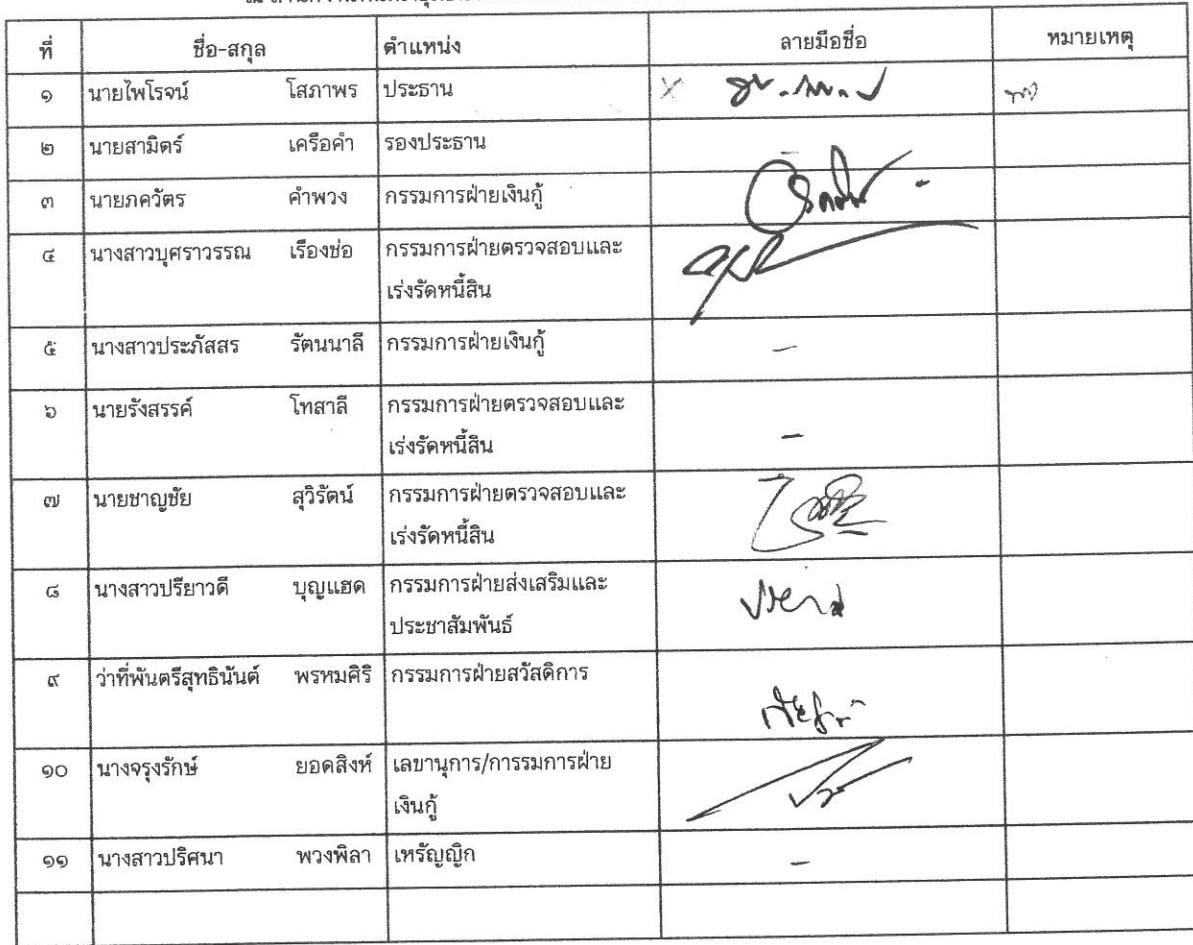 ที่ ชื่อ-สกุล ตำแหน่ง ลายมือชื่อ หมายเหตุ
๑ นายไพโรจน์ โสภาพร ประธาน
๒ นายสามิตร์ เครือคำ รองประธาน -
๓ นายภควัตร คำพวง กรรมการฝ่ายเงินกู้
๔ นางสาวบุศราวรรณ เรืองช่อ กรรมการฝ่ายตรวจสอบและ
เร่งรัดหนี้สิน
๕ นางสาวประภัสสร รัตนนาลี กรรมการฝ่ายเงินกู้ -
๖ นายรังสรรค์ โทสาลี กรรมการฝ่ายตรวจสอบและ
เร่งรัดหนี้สิน -
๗ นายชาญชัย สุวิรัตน์ กรรมการฝ่ายตรวจสอบและ
เร่งรัดหนี้สิน
๘ นางสาวปรียาวดี บุญแฮด กรรมการฝ่ายส่งเสริมและ
ประชาสัมพันธ์
๙ ว่าที่พันตรีสุทธินันต์ พรหมศิริ กรรมการฝ่ายสวัสดิการ
๑๐ นางจรุงรักษ์ ยอดสิงห์ เลขานุการ/การรมการฝ่าย
เงินกู้
๑๑ นางสาวปริศนา พวงพิลา เหรัญญิก -